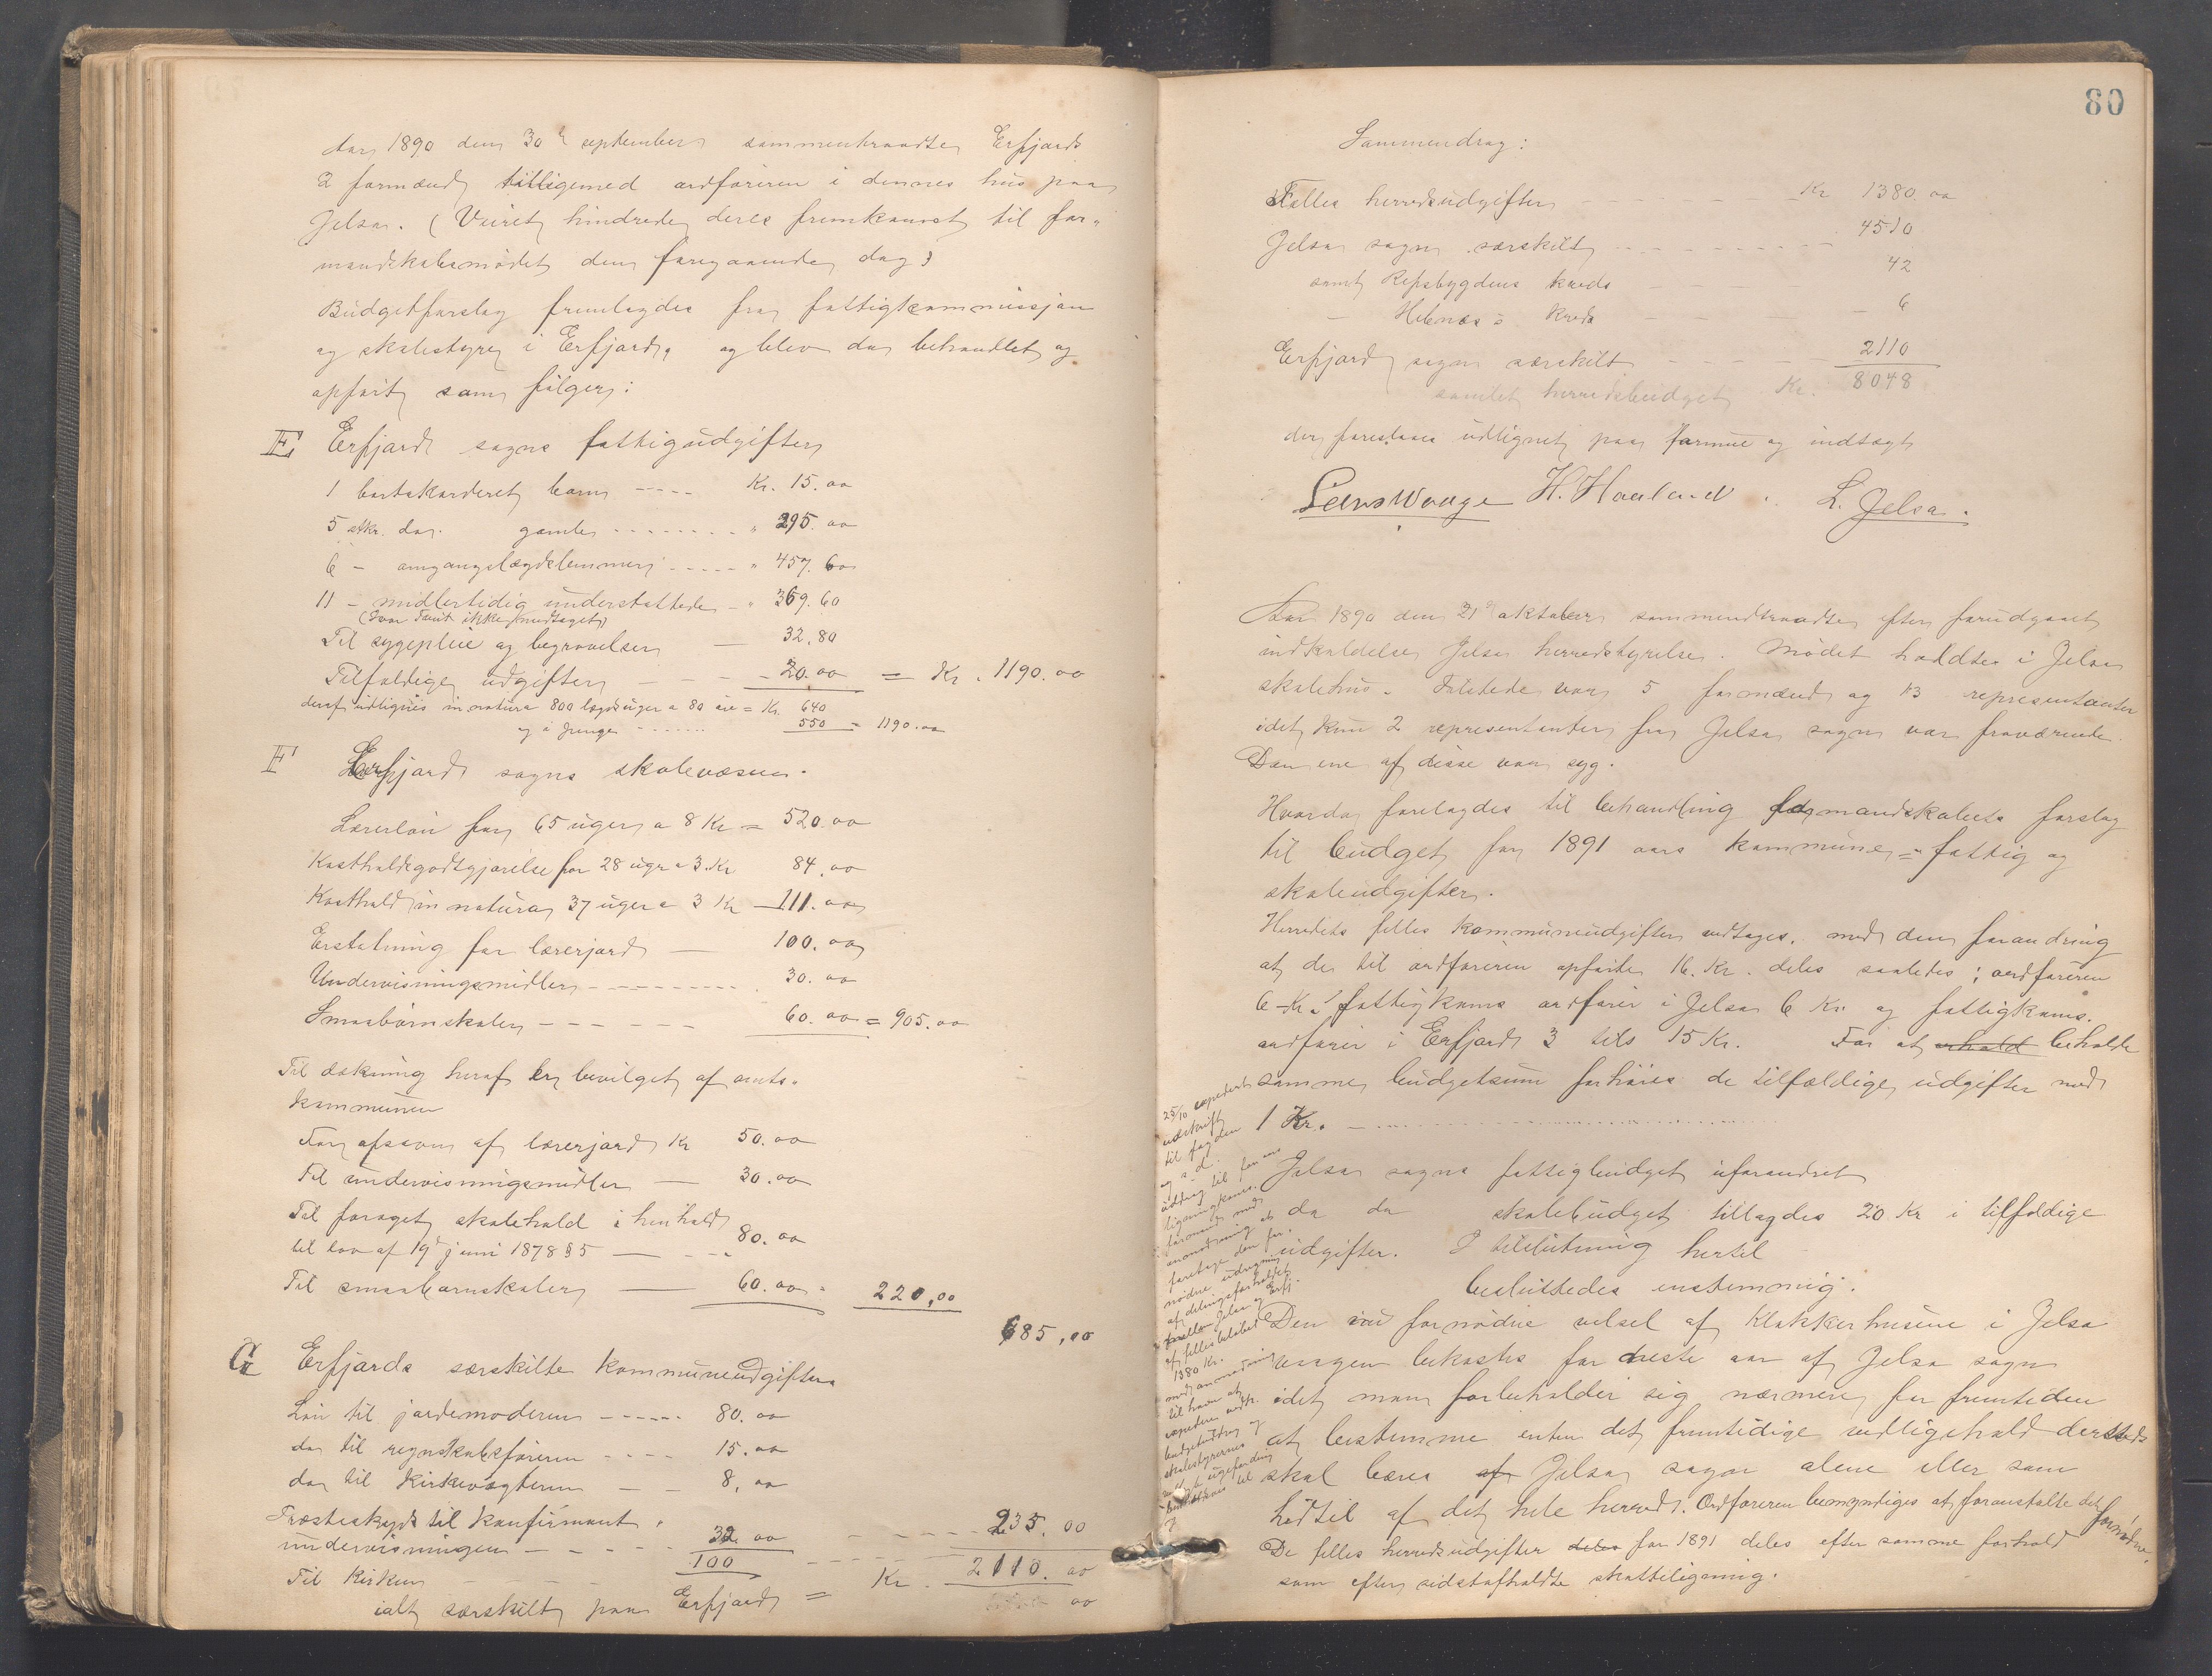 Aar 1890 den 30te september sammentraadte Erfjords
2 formænd tilligemed ordføreren i dennes hus paa
Jelsa. (Veiret hindrede deres fremkomst til for-
mandskabsmødet den foregaaende dag)
Budgetforslag fremlagdes fra fattigkommissjon
og skolestyre i Erfjord, og blev da behandlet og
opført som følger:
E Erfjord sogns fattigudgifter
1 bortakkorderet barn ---- Kr. 15.00
5 stkr. do. gamle ------- " 295.00
6 - omgangslægdslemmer ----- " 457.60
11 - midlertidig understøttede - " 369.60
(Ivar Tveit ikke medtaget)
Til sygepleie og begravelser — 32.80
Tilfældige udgifter - - - - 20.00 = Kr. 1190.00
deraf udlignes in natura 800 lægdsuger a 80 øre = Kr. 640
og i penge ------- 550 = 1190.00
F Erfjord sogns skolevæsen.
Lærerløn for 65 uger a 8 Kr = 520.00
Kostholdsgodtgjørelse for 28 uger a 3 Kr 84.00
Kosthold in natura 37 uger a 3 Kr — 111.00
Erstatning for lærerjord — 100.00
Undervisningsmidler --------- 30.00
Smaabørnskolen - - - - - - 60.00 = 905.00
Til dækning heraf er bevilget af amts-
kommunen
For afsavn af lærerjord Kr 50.00
Til undervisningsmidler — 30.00
Til forøget skolehold i henhold
til lov af 19de juni 1878 § 5 — - - 80.00
Til smaabørnskolen — 60.00 = 220.00
685,00
G Erfjords særskilte kommuneudgifter
Løn til jordemoderen ------ 80.00
do til regnskabsføreren - - - - 15.00
do til Kirkevægteren — - 8,00
Præsteskyds til konfirmant-
undervisningen — - - - - 32.00 - - - - - 235.00
Til kirken - - - 100 - - - - - 2110.00
ialt særskilt paa Erfjord = Kr.
80
Sammendrag:
Fælles herredsudgifter - - - - - - - Kr 1380.00
Jelsa sogn særskilt - - - - - - - - - 4510
samt Ropsbygdens kreds - - - - 42
- Hebnes ø kreds - - - - - 6
Erfjord sogn særskilt - - - - - - 2110
samlet herredsbudget Kr. 8048
der foreslaaes udlignet paa formue og indtægt
Lars Waage H. Haaland. L. Jelsa.
Aar 1890 den 21de oktober sammentraadte efter forudgaaet
indkaldelse Jelsa herredstyrelse. Mødet holdtes i Jelsa
skolehus. Tilstede var 5 formænd og 13 repræsentanter
idet kun 2 repræsentanter fra Jelsa sogn var fraværende.
Den ene af disse var syg.
Hvorda forelagdes til behandling formandskabets forslag
til budget for 1891 aars kommune- fattig og
skoleudgifter.
Herredets fælles kommuneudgifter vedtages, med den forandring
at de til ordføreren opførte 16 Kr. deles saaledes: ordføreren
6 Kr., fattigkoms ordfører i Jelsa 6 Kr og fattigkoms.
ordfører i Erfjord 3 tils 15 Kr. For at beholde
samme budgetsum forhøies de tilfældige udgifter med
1 Kr. - ...................
Jelsa sogns fattigbudget uforandret
do do skolebudget tillagdes 20 Kr i tilfældige
udgifter. I tilslutning hertil
besluttedes enstemmig:
Den nu fornødne veksel af Klokkerhusene i Jelsa
vaagen bekostes for næste aar af Jelsa sogn
idet man forbeholder sig nærmere for fremtiden
at bestemme enten det fremtidige vedligehold dersteds
skal bæres af Jelsa sogn alene eller som
hidtil af det hele herred. Ordføreren bemyndiges at foranstalte det fornødne.
De fælles herredsudgifter deles for 1891 deles efter samme forhold
som efter sidstafholdte skatteligning.
25/10 expedert
udskrift
til fogden
og s. d.
uddrag til for
ligningskoms.
formænd med
anmodning at
foretage den for-
nødne udregning
af delingsforholdet
Jelsa og Erfj.
af fælles beløbet
1380 Kr.
med anmodning